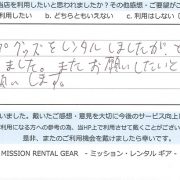 当店を利用したいと思われましたか？その他感想・ご要望がご
利用したい b. どちらともいえない c. 利用はしない（
グッズをレンタルしましたが、
ました。またお願いしたいと
します。
いました。戴いたご感想・意見を大切に今後のサービス向上
利用になる方への参考の為、当社HP上で利用させて戴くことがござい
是非、またのご利用機会を戴けましたら幸いです。
MISSION RENTAL GEAR - ミッション・レンタル ギア -